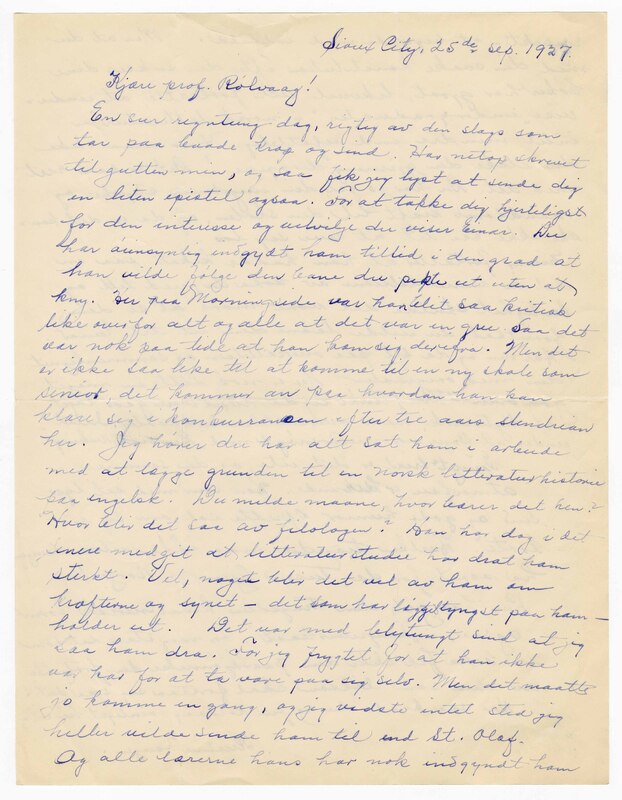 Sioux City, 25de sep. 1927.
Kjære prof. Rölvaag!
En sur regntung dag, rigtig av den slags som
tar paa baade krop og sind. Har netop skrevet
til gutten min, og saa fik jeg lyst at sende dig
en liten epistel ogsaa. For at takke dig hjerteligst
for den interesse og velvilje du viser Einar. Du
har aunsynlig indgydt ham tillid i den grad at
han vilde følge den bane du pekte ut uten at
kny. Her paa Morningside var han blit saa kritisk
like overfor alt og alle at det var en gru. Saa det
var nok paa tide at han kom sig derifra. Men det
er ikke saa like til at komme til en ny skole som
senior, det kommer an paa hvordan han kan
klare sig i konkurransen efter tre aars slendrian
her. Jeg hører du har alt sat ham i arbeide
med at lægge grunden til en norsk litteraturhistorie
paa engelsk. Du milde maane, hvor bærer det hen?
Hvor blev det saa av filologen? Han har dog i det
senere medgit at litteraturstudie har drat ham
sterkt. Vel, noget blir det vel av ham om
kræfterne og synet – det som har ligget tyngst paa ham –
holder ut. Det var med blytungt sind at jeg
saa ham dra. For jeg frygtet for at han ikke
var kar for at ta vare paa sig selv. Men det maatte
jo komme en gang, og jeg vidste intet sted jeg
heller vilde sende ham til end St. Olaf.
Og alle lærerne hans har nok indgyndt ham